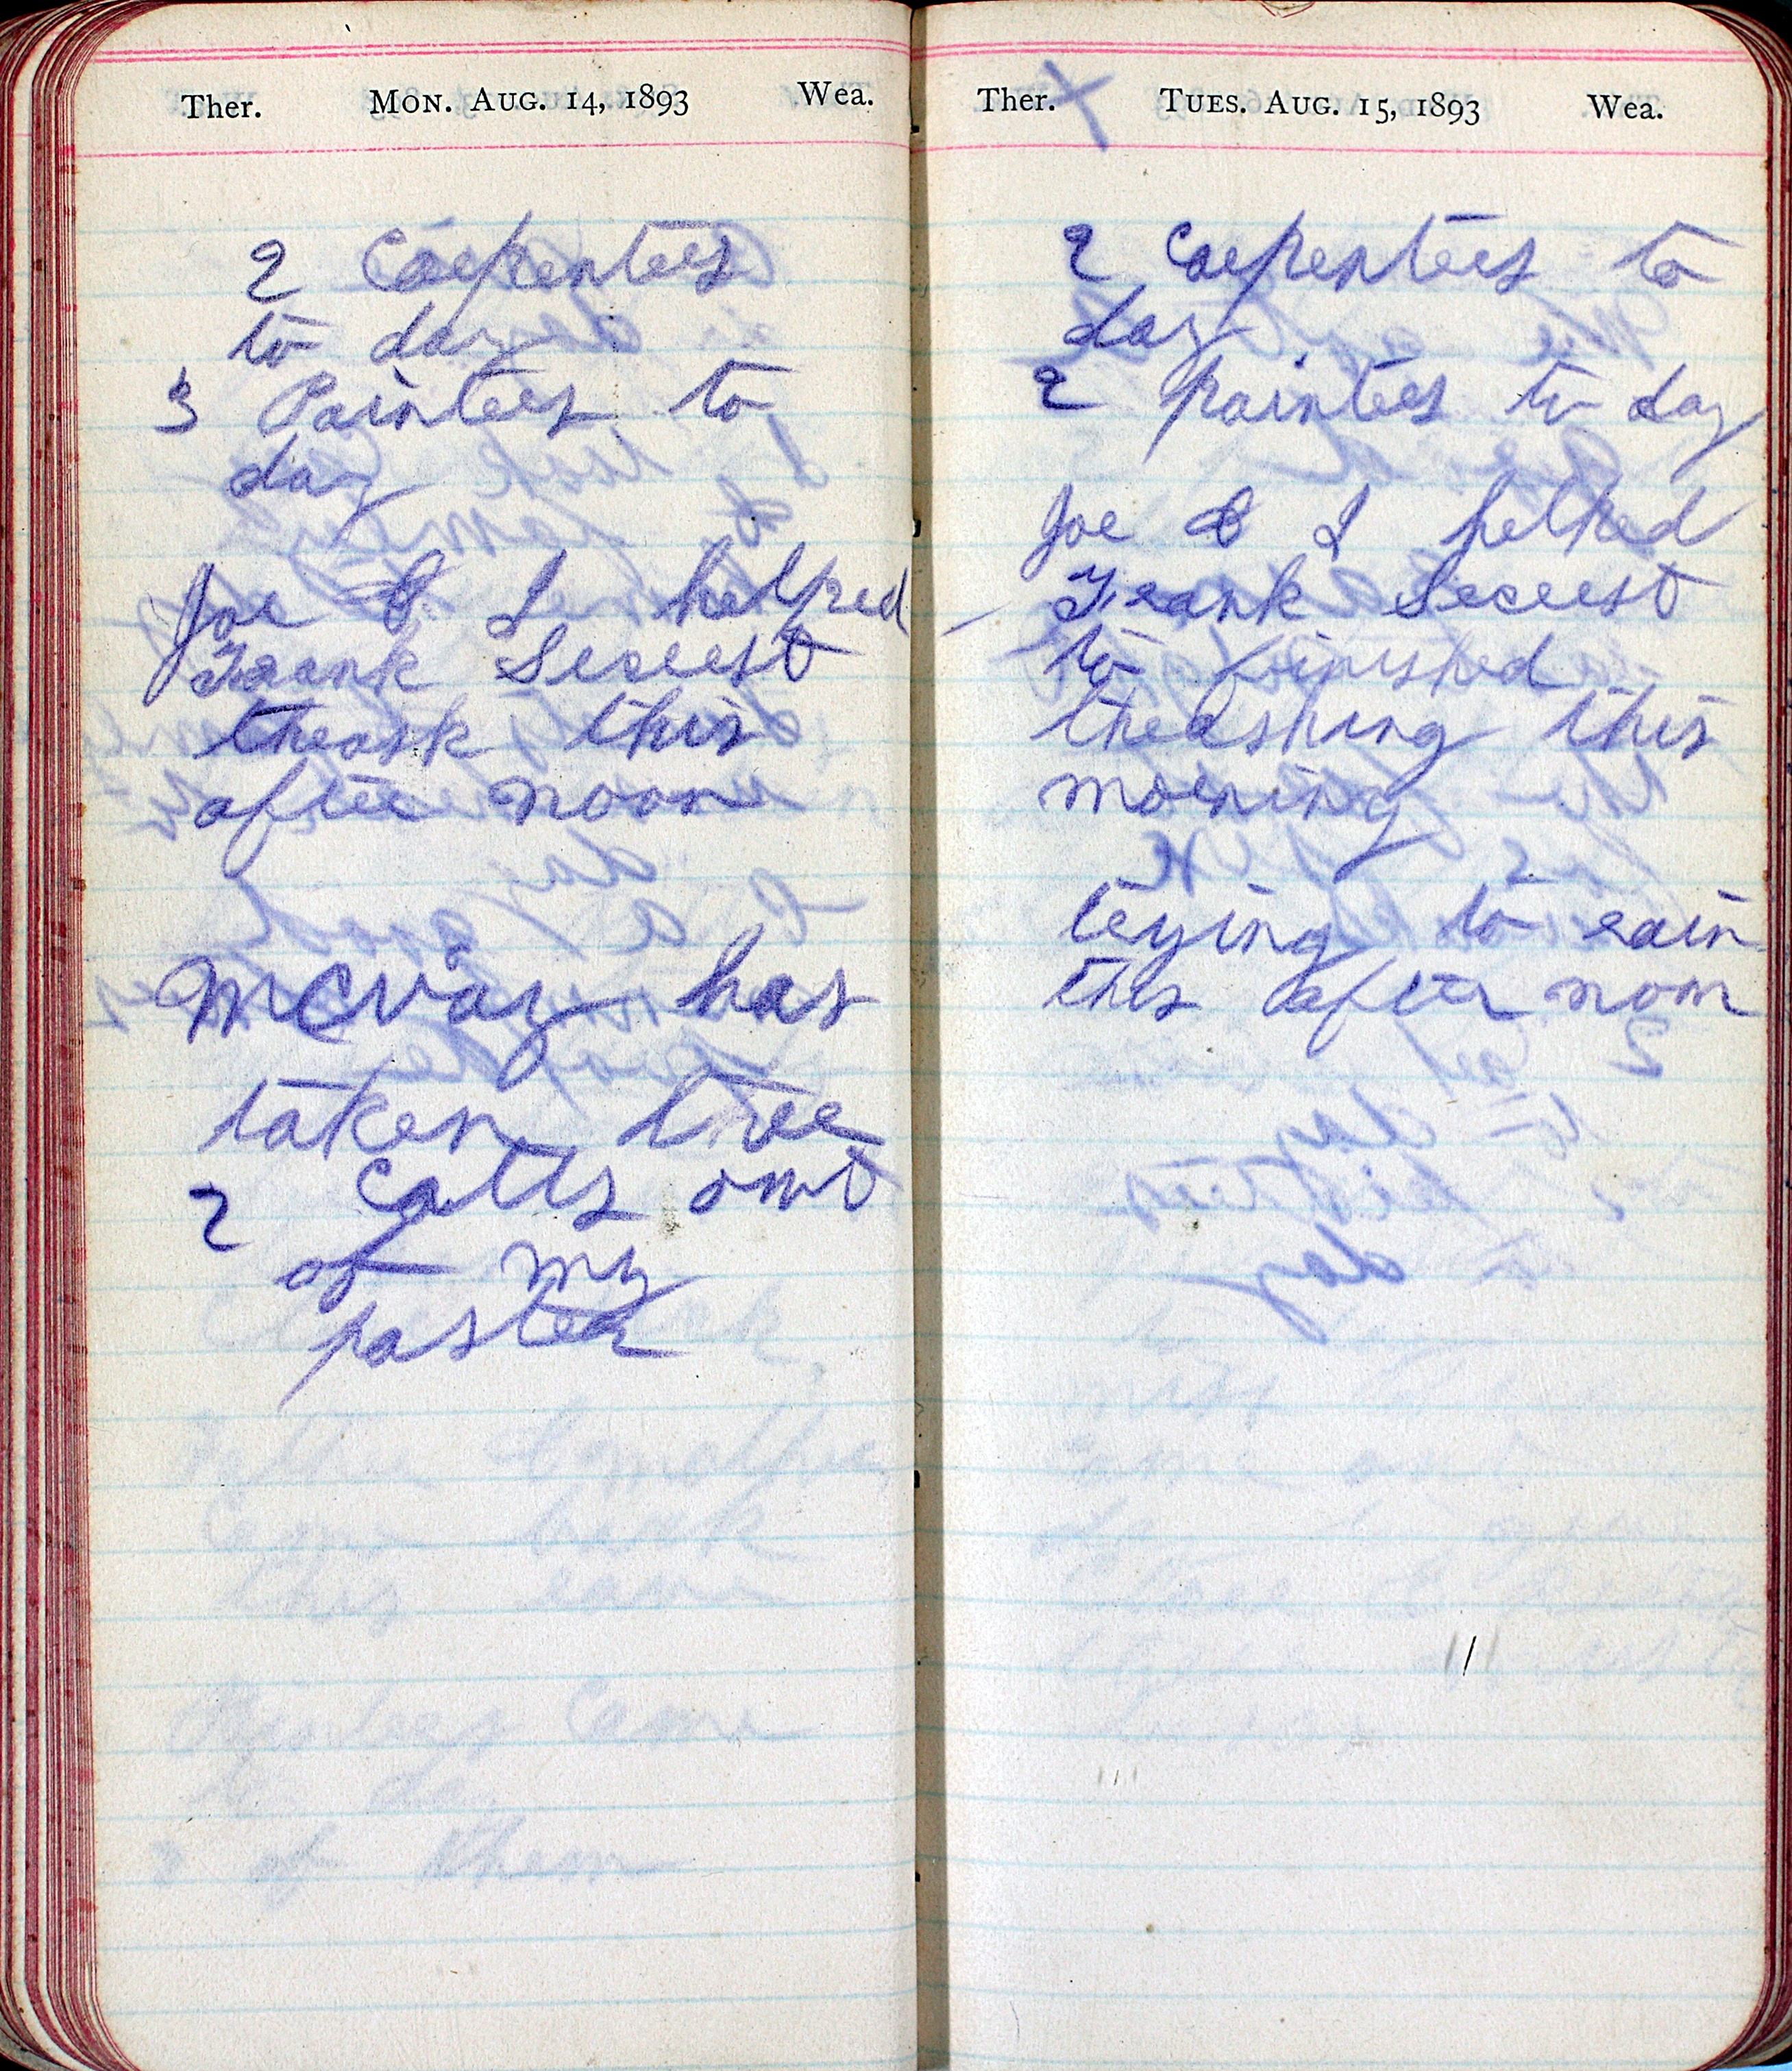 Ther. MON. AUG. 14, 1893 Wea.
2 Carpenters
to day
3 Painters to
day
Joe & I helped
Frank Secrest
thrash this
after noon
McVay has
taken
2 Catls out
of my
paster
Ther. TUES. AUG. 15, 1893 Wea.
2 Carpenters to
day
2 painters to day
Joe & I helped
Frank Secrest
to finished
thrashing this
morning
trying to rain
this after noon